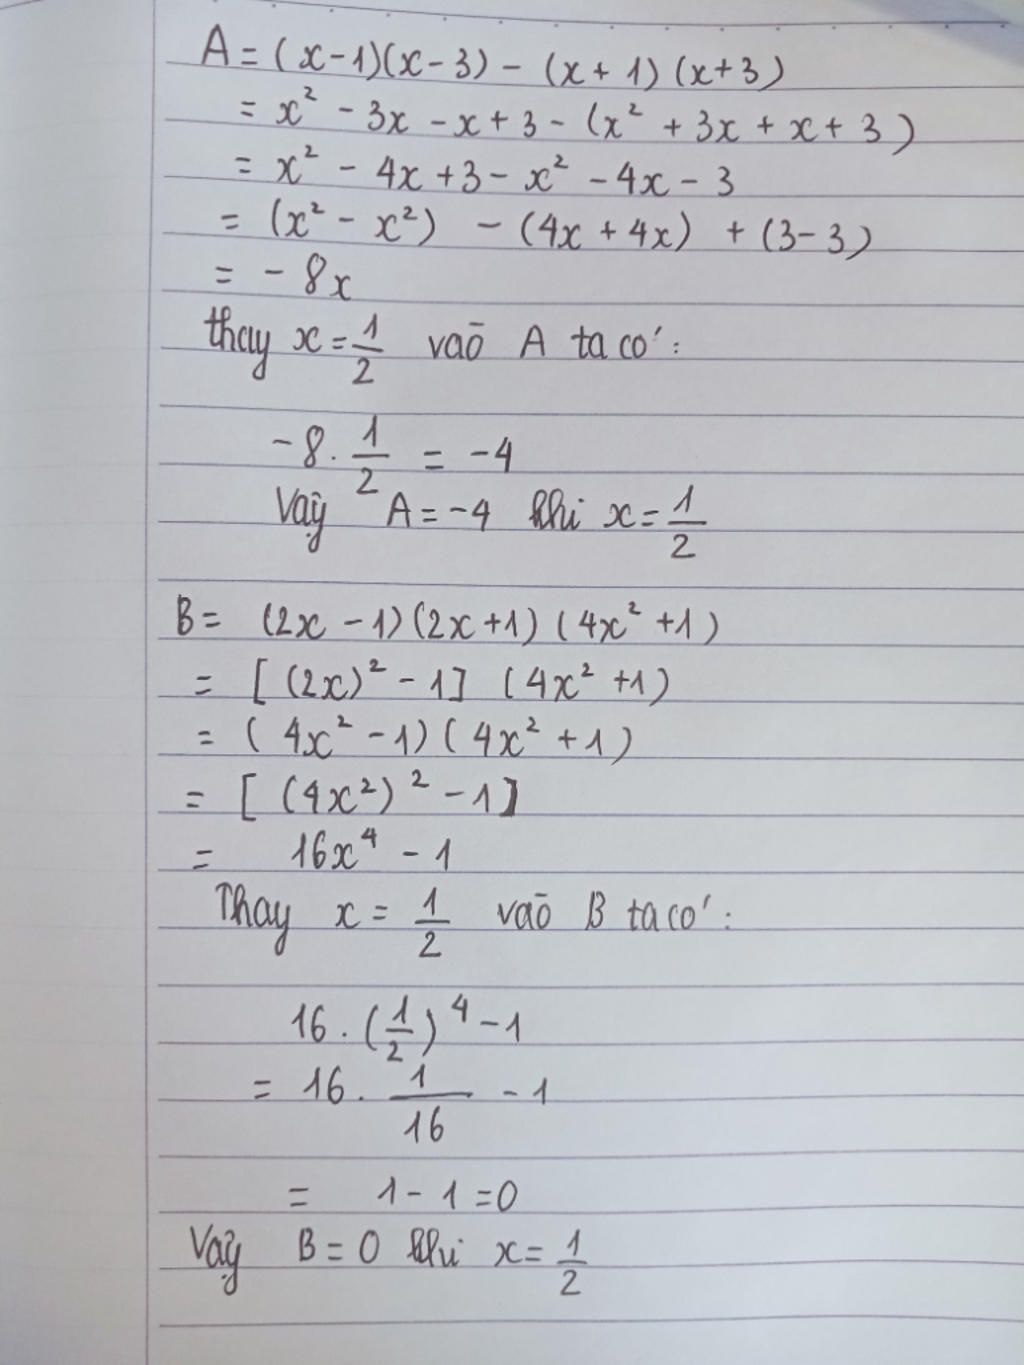 A = (x-1)(x-3) - (x+1)(x+3)
= x² - 3x - x + 3 - (x² + 3x + x + 3)
= x² - 4x + 3 - x² - 4x - 3
= (x² - x²) - (4x + 4x) + (3-3)
= - 8x
thay x = 1/2 vào A ta có:
-8 . 1/2 = -4
Vậy A = -4 khi x = 1/2
B = (2x - 1)(2x+1)(4x² +1)
= [(2x)² - 1] (4x² +1)
= (4x² - 1)(4x² + 1)
= [(4x²)² - 1]
= 16x⁴ - 1
Thay x = 1/2 vào B ta có:
16 . (1/2)⁴ - 1
= 16 . 1/16 - 1
= 1 - 1 = 0
Vậy B = 0 khi x = 1/2